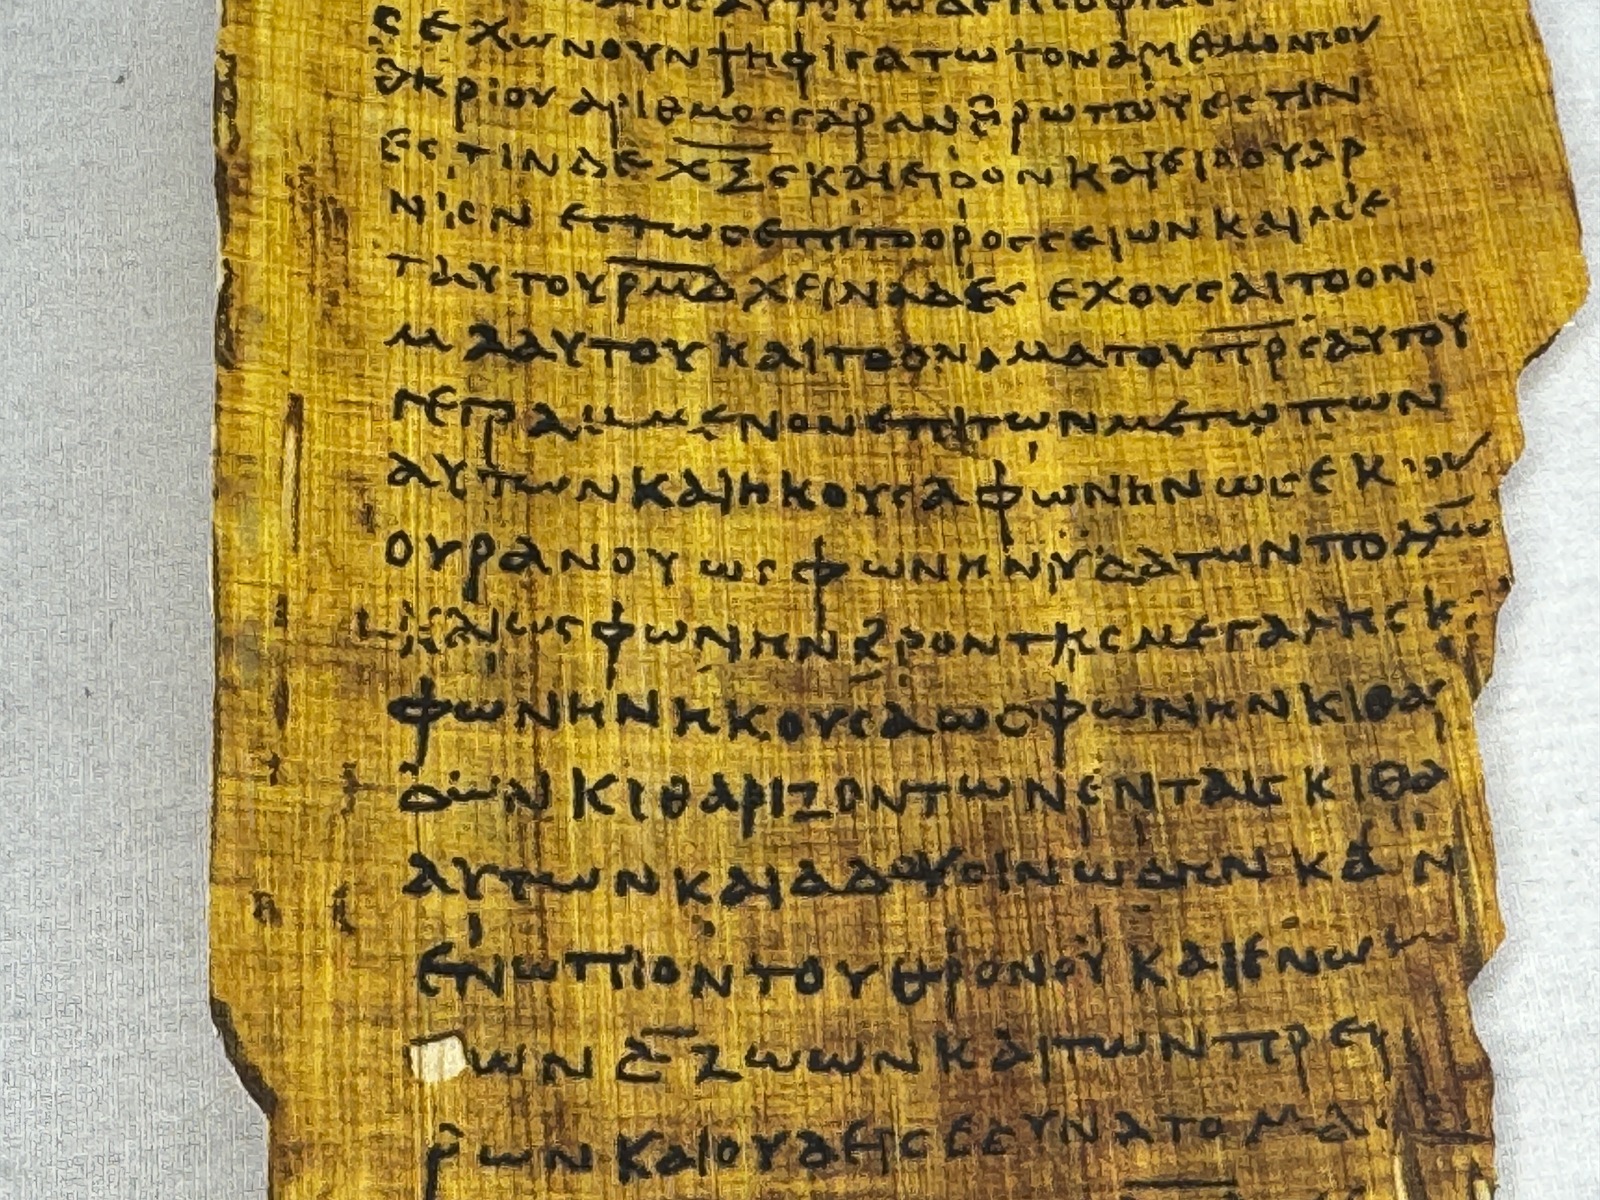 ϲ εχων ουν ψηφιϲατω τον αριθμον του
θηριου αριθμοϲ γαρ ανθρωπου εϲτιν
εϲτιν δε χ̅ξ̅ϲ̅ και ειδον και ειδου αρ
νιον εϲτωϲ επι το οροϲ ϲειων και με
τ αυτου ρ̅μ̅δ̅ χειλιαδεϲ εχουϲαι το ον
μα αυτου και το ονομα του π̅ρ̅ϲ̅ αυτου
γεγραμμενον επι των μετωπων
αυτων και ηκουϲα φωνην ωϲ εκ του
ουρανου ωϲ φωνην υδατων πολλω̅
και ωϲ φωνην βροντηϲ μεγαληϲ κ
φωνην ηκουϲα ωϲ φωνην κιθαρ
δων κιθαριζοντων εν ταιϲ κιθα
αυτων και αδουϲιν ωδην κα ν
ενωπιον του θρονου και ενω
ων δ̅ ζωων και των πρε
ρων και ουδειϲ εδυνατο μα